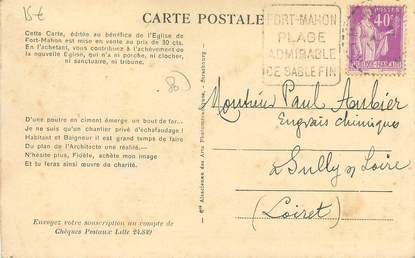 15€
CARTE POSTALE
Cette Carte, éditée au bénéfice de l'Eglise de
Fort-Mahon est mise en vente au prix de 30 cts.
En l'achetant, vous contribuez à l'achèvement de
la nouvelle Eglise, qui n'a ni porche, ni clocher,
ni sanctuaire, ni tribune.
80
D'une poutre en ciment émerge un bout de fer...
Je ne suis qu'un chantier privé d'échafaudage !
Habitant et Baigneur il est grand temps de faire
Du plan de l'Architecte une réalité.—
N'hésite plus, Fidèle, achète mon image
Et tu feras ainsi œuvre de charité.
Envoyez votre souscription au compte de
Chèques Postaux Lille 24.849
Alsacienne des Arts Photomécaniques, - Strasbourg -
FORT-MAHON
PLAGE
ADMIRABLE
DE SABLE FIN
40c
POSTES
Monsieur Paul Aubier
Engrais chimiques
à Sully s/ Loire
(Loiret)